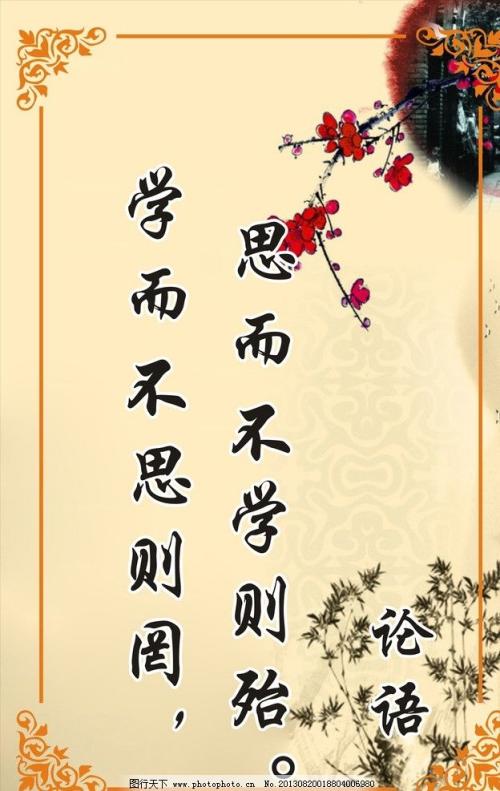 学而不思则罔，
思而不学则殆。
论语
图行天下 www.photophoto.cn No.20130820018804006980